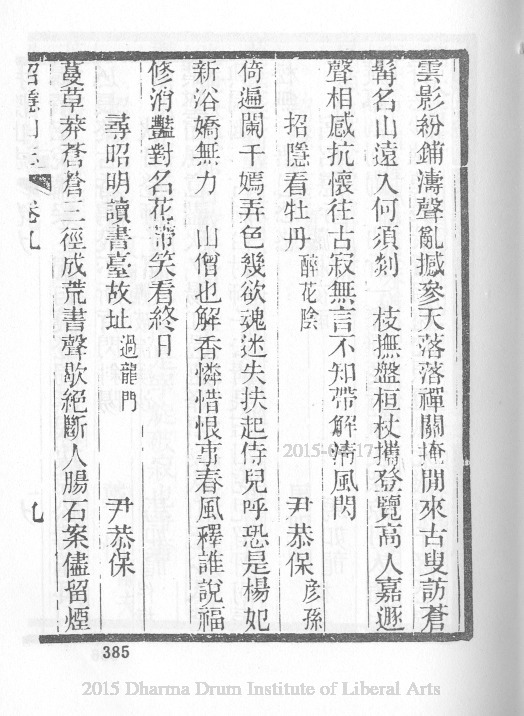 雲影紛鋪濤聲亂撼參天落落禪關掩閒來古叟訪蒼
髯名山遠入何須剡　枝撫盤桓杖攜登覽高人嘉遯
聲相感抗懷往古寂無言不知帶解清風閃
招隱看牡丹 醉花陰 尹恭保 彦孫
倚遍闌干嫣弄色幾欲魂迷失扶起侍兒呼恐是楊妃
新浴嬌無力　山僧也解香憐惜恨事春風釋誰說福
修消豔對名花帶笑看終日
尋昭明讀書臺故址 過龍門 尹恭保
蔓草莽蒼蒼三徑成荒書聲歇絕斷人腸石案儘留煙
卷九 九
385
2015 Dharma Drum Institute of Liberal Arts